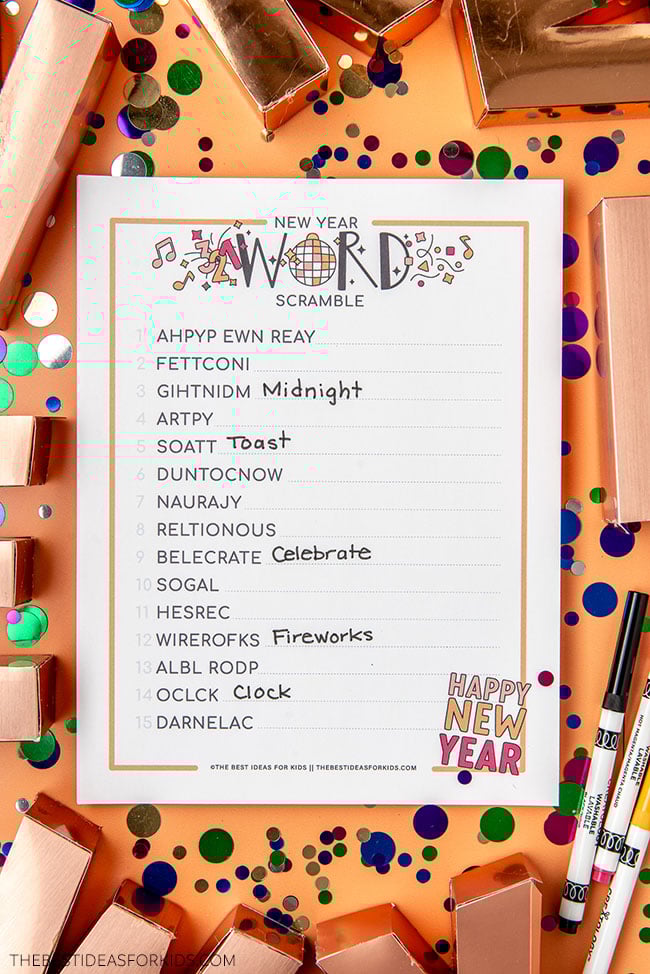 NEW YEAR
321 WORD
SCRAMBLE
1 AHPYP EWN REAY
2 FETTCONI
3 GIHTNIDM Midnight
4 ARTPY
5 SOATT Toast
6 DUNTOCNOW
7 NAURAJY
8 RELTIONOUS
9 BELECRATE Celebrate
10 SOGAL
11 HESREC
12 WIREROFKS Fireworks
13 ALBL RODP
14 OCLCK Clock
15 DARNELAC
HAPPY
NEW
YEAR
©THE BEST IDEAS FOR KIDS || THEBESTIDEASFORKIDS.COM
WASHABLE
LAVABLE
HOT MAGENTA/MAGENTA CHAUD
WASHABLE
LAVABLE
THEBESTIDEASFORKIDS.COM